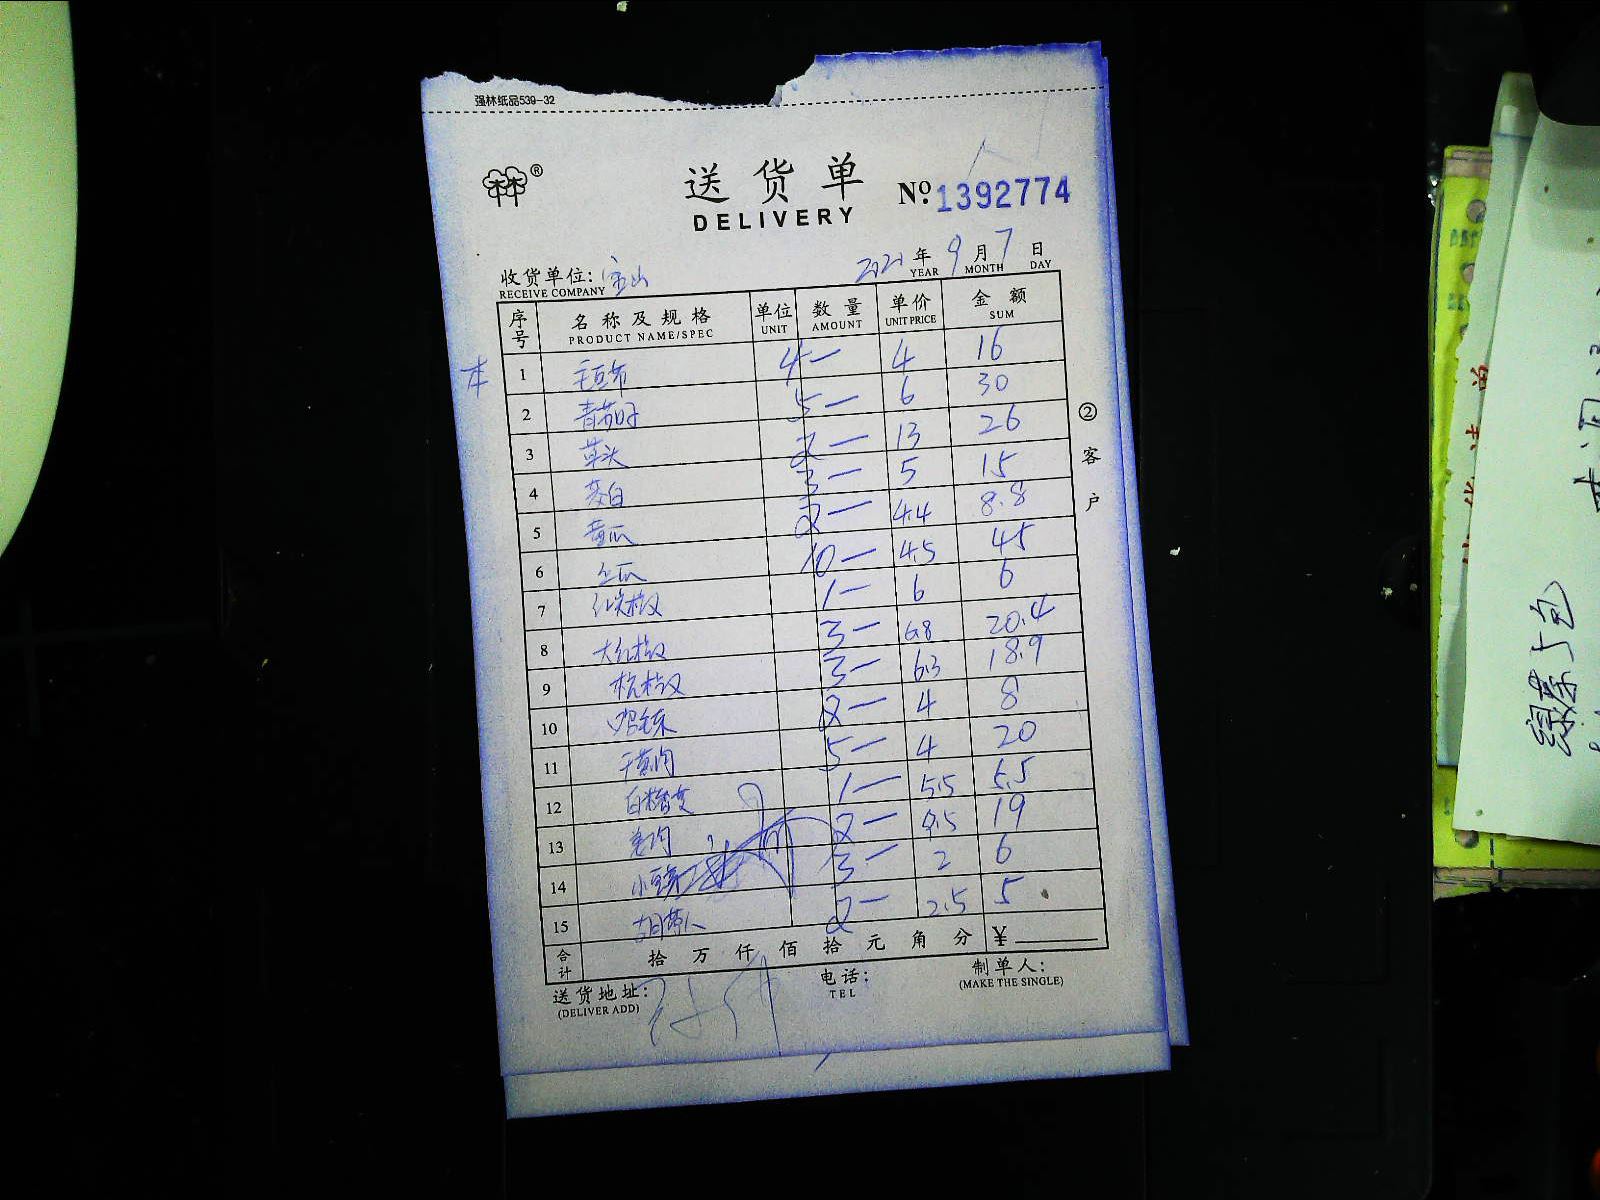 强林纸品539-32
林® 送货单 №1392774
DELIVERY
收货单位: 宝山 2021年9月7日
RECEIVE COMPANY YEAR MONTH DAY
序号 名称及规格 单位 数量 单价 金额
PRODUCT NAME/SPEC UNIT AMOUNT UNIT PRICE SUM
本 1 干豆布 4一 4 16
2 青茄子 5一 6 30
3 草头 2一 13 26
4 茭白 3一 5 15
5 黄瓜 2一 4.4 8.8
6 10一 4.5 45
7 红尖椒 1一 6 6
8 大红椒 3一 6.8 20.4
9 杭椒 3一 6.3 18.9
10 2一 4 8
11 5一 4 20
12 1一 5.5 5.5
13 姜肉 2一 9.5 19
14 3一 2 6
15 2一 2.5 5
合计 拾万仟佰拾元角分 ¥
送货地址: 电话: 制单人:
(DELIVER ADD) TEL (MAKE THE SINGLE)
②客户
绿茶5包